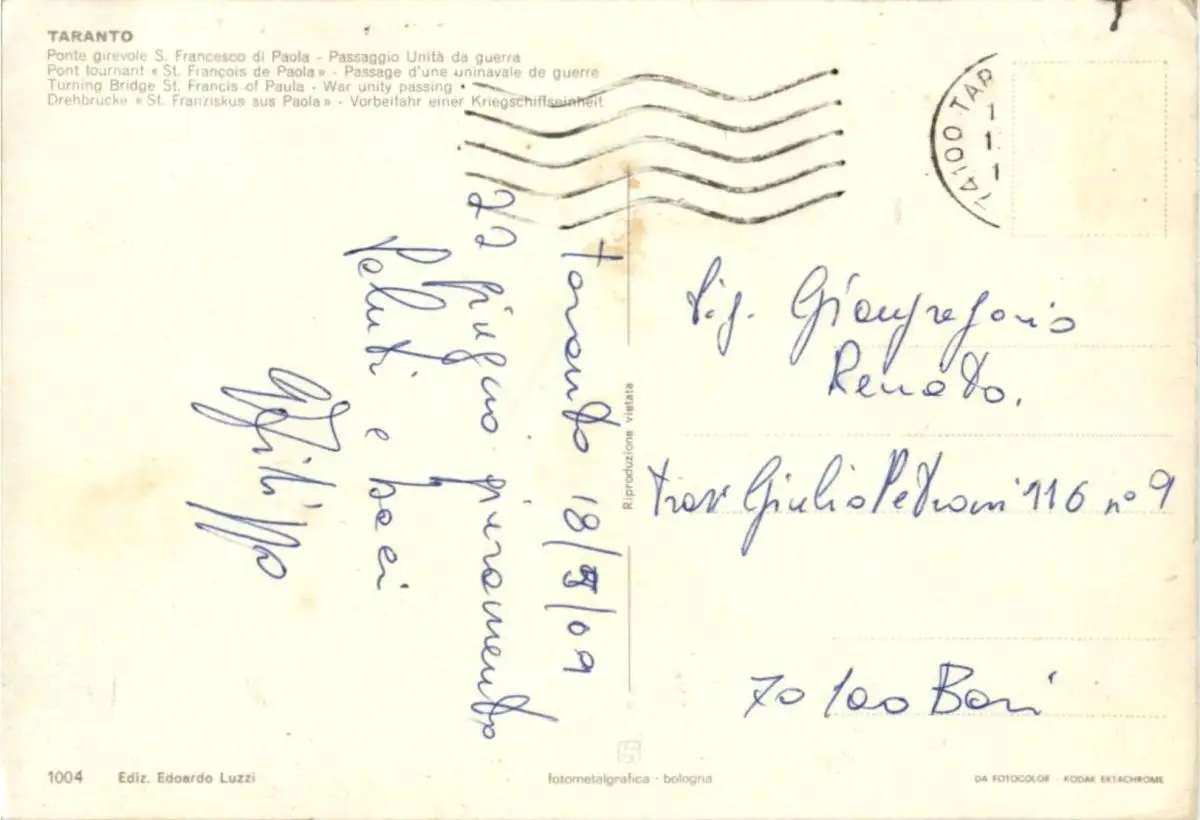 TARANTO
Ponte girevole S. Francesco di Paola - Passaggio Unità da guerra
Pont tournant « St. François de Paola » - Passage d'une uninavale de guerre
Turning Bridge St. Francis of Paula - War unity passing
Drehbrucke « St. Franziskus aus Paola » - Vorbeifahr einer Kriegschiffseinheit
74100 TAR
Taranto 18/5/09
22 giugno giuramento
Saluti e baci
Filippo
Riproduzione vietata
Sig. Giangregorio
Renato.
Trav Giulio Petroni 116 n° 9
70100 Bari
1004 Ediz. Edoardo Luzzi
fotometalgrafica - bologna
DA FOTOCOLOR - KODAK EKTACHROME